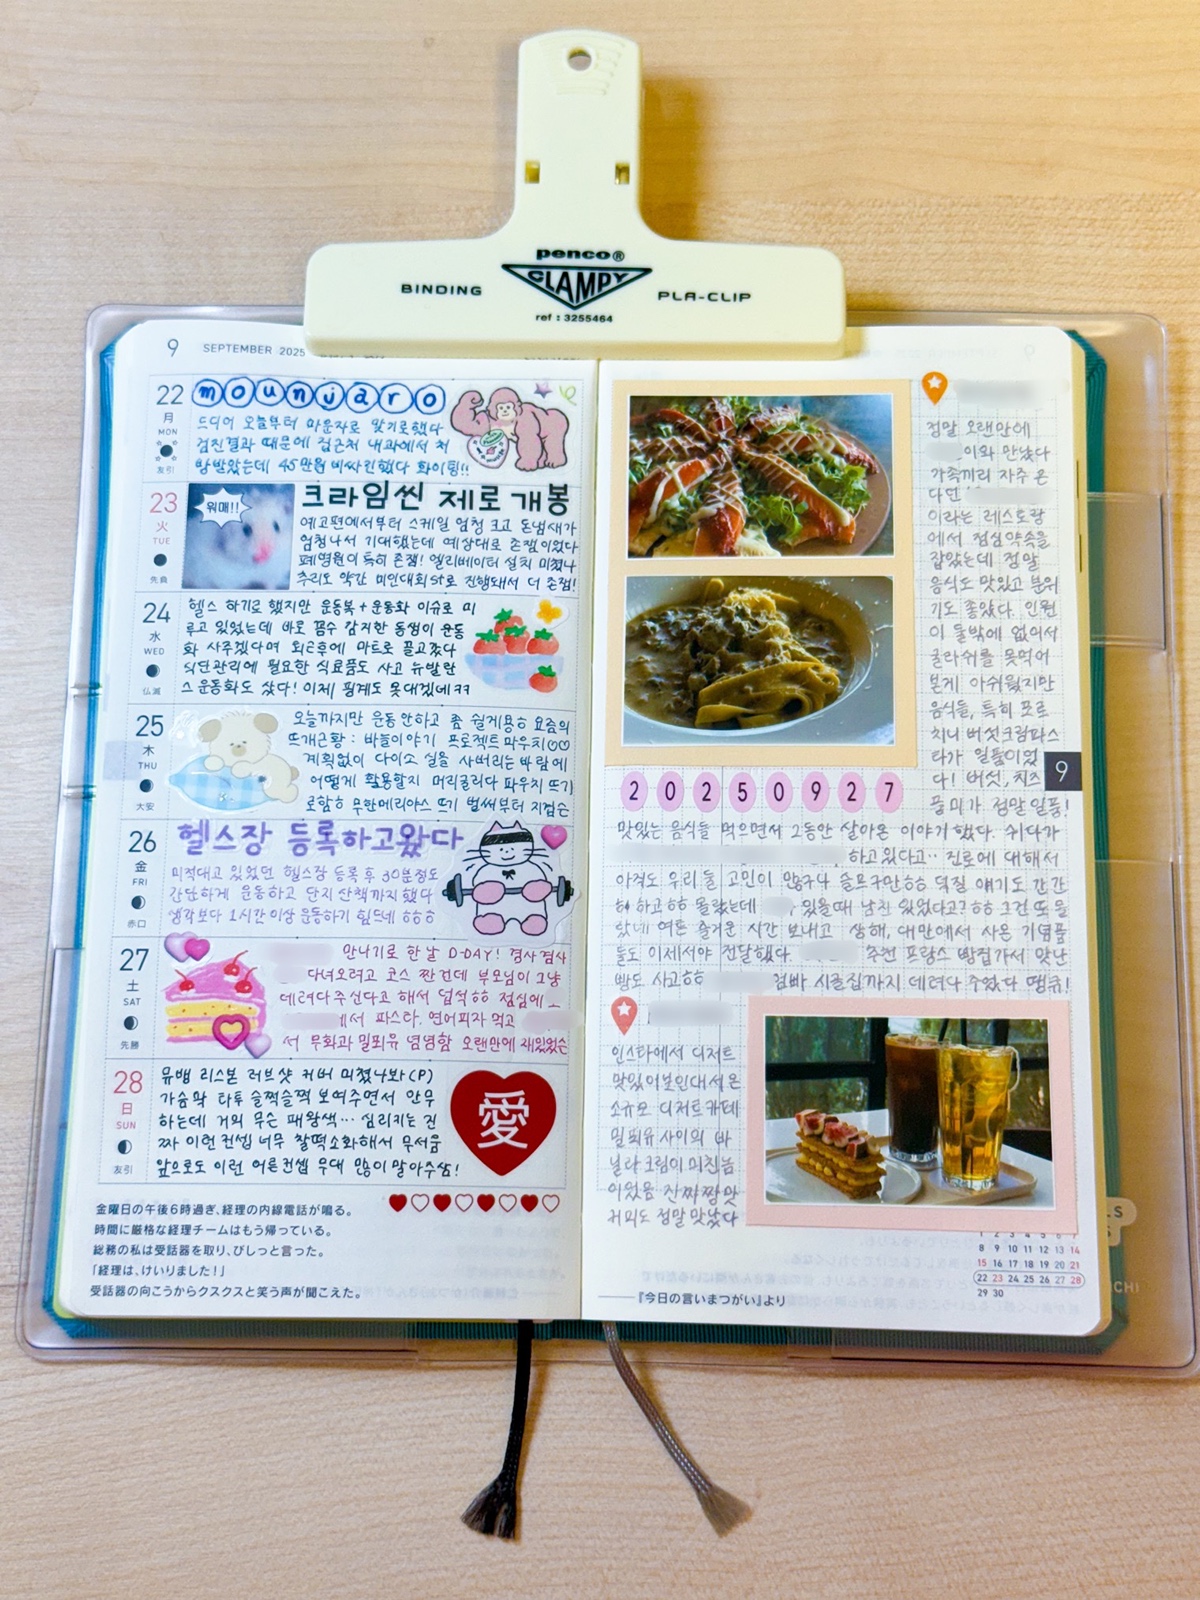 penco®
CLAMPY
BINDING
PLA-CLIP
ref : 3255464
9
SEPTEMBER 2025
22
月
MON
友引
mounjaro
드디어 오늘부터 마운자로 맞기로했다
검진결과 때문에 집근처 내과에서 처
방받았는데 45만원 비싸긴했다 화이팅!!
23
火
TUE
先負
워매!!
크라임씬 제로 개봉
예고편에서부터 스케일 엄청 크고 돈냄새가
엄청나서 기대했는데 예상대로 존잼이었다
폐병원이 특히 존잼! 엘리베이터 설치 미쳤나
추리도 약간 미인대회st로 진행돼서 더 존잼!
24
水
WED
仏滅
헬스 하기로 했지만 운동복+운동화 이슈로 미
루고 있었는데 바로 꼼수 감지한 동생이 운동
화 사주겠다며 퇴근후에 마트로 끌고갔다
식단관리에 필요한 식료품도 사고 뉴발란
스 운동화도 샀다! 이제 핑계도 못대겠네ㅋㅋ
25
木
THU
大安
오늘까지만 운동안하고 좀 쉴게용ㅎ 요즘의
뜨개근황 : 바늘이야기 프로젝트파우치
계획없이 다이소 실을 사버리는 바람에
어떻게 활용할지 머리굴리다 파우치 뜨기
로함ㅎ 무한메리야스 뜨기 벌써부터 지겹슨
26
金
FRI
赤口
헬스장 등록하고왔다
미적대고 있었던 헬스장 등록 후 30분정도
간단하게 운동하고 단지 산책까지 했다
생각보다 1시간 이상 운동하기 힘드네 ㅎㅎㅎ
27
土
SAT
先勝
만나기로 한 날 D-DAY! 겸사겸사
다녀오려고 코스 짠건데 부모님이 그냥
데려다주신다고 해서 덥석ㅎㅎ 점심에
에서 파스타, 연어피자 먹고
서 무화과 밀푀유 냠냠함 오랜만에 재밌었슨
28
日
SUN
友引
뮤뱅 리스본 러브샷 커버 미쳤나봐(P)
가슴팍 타투 슬쩍슬쩍 보여주면서 안무
하는데 거의 무슨 패왕색… 심리지는 진
짜 이런컨셉 너무 찰떡소화해서 무서움
앞으로도 이런 어른컨셉 무대 많이 말아주삼!
愛
金曜日の午後6時過ぎ、経理の内線電話が鳴る。
時間に厳格な経理チームはもう帰っている。
総務の私は受話器を取り、びしっと言った。
「経理は、けいりました!」
受話器の向こうからクスクスと笑う声が聞こえた。
정말 오랜만에
이와 만났다
가족끼리 자주 온
다던
이라는 레스토랑
에서 점심약속을
잡았는데 정말
음식도 맛있고 분위
기도 좋았다. 인원
이 둘밖에 없어서
굴라쉬를 못먹어
본게 아쉬웠지만
음식들, 특히 포르
치니 버섯크림파스
타가 일품이었
다! 버섯, 치즈
풍미가 정말 일품!
9
20250927
맛있는 음식들 먹으면서 그동안 살아온 이야기 했다. 쉬다가
하고있다고.. 진로에 대해서
아직도 우리 둘 고민이 많구나 슬프구만ㅎㅎ 덕질 얘기도 간간
히 하고ㅎㅎ 몰랐는데 , 있을때 남친 있었다고?ㅎㅎ 그건 또 몰
랐네 여튼 즐거운 시간 보내고 생해, 대만에서 사온 기념품
들도 이제서야 전달했다. 추천 프랑스 빵집가서 맛난
빵도 사고ㅎㅎ 시골집까지 데려다 주셨다 땡큐!
인스타에서 디저트
맛있어보인대서 온
소규모 디저트카페
밀푀유 사이의 바
닐라 크림이 미친놈
이었음 진짜 짱맛
커피도 정말 맛났다
1 2 3 4 5 6 7
8 9 10 11 12 13 14
15 16 17 18 19 20 21
22 23 24 25 26 27 28
29 30
『今日の言いまつがい』より